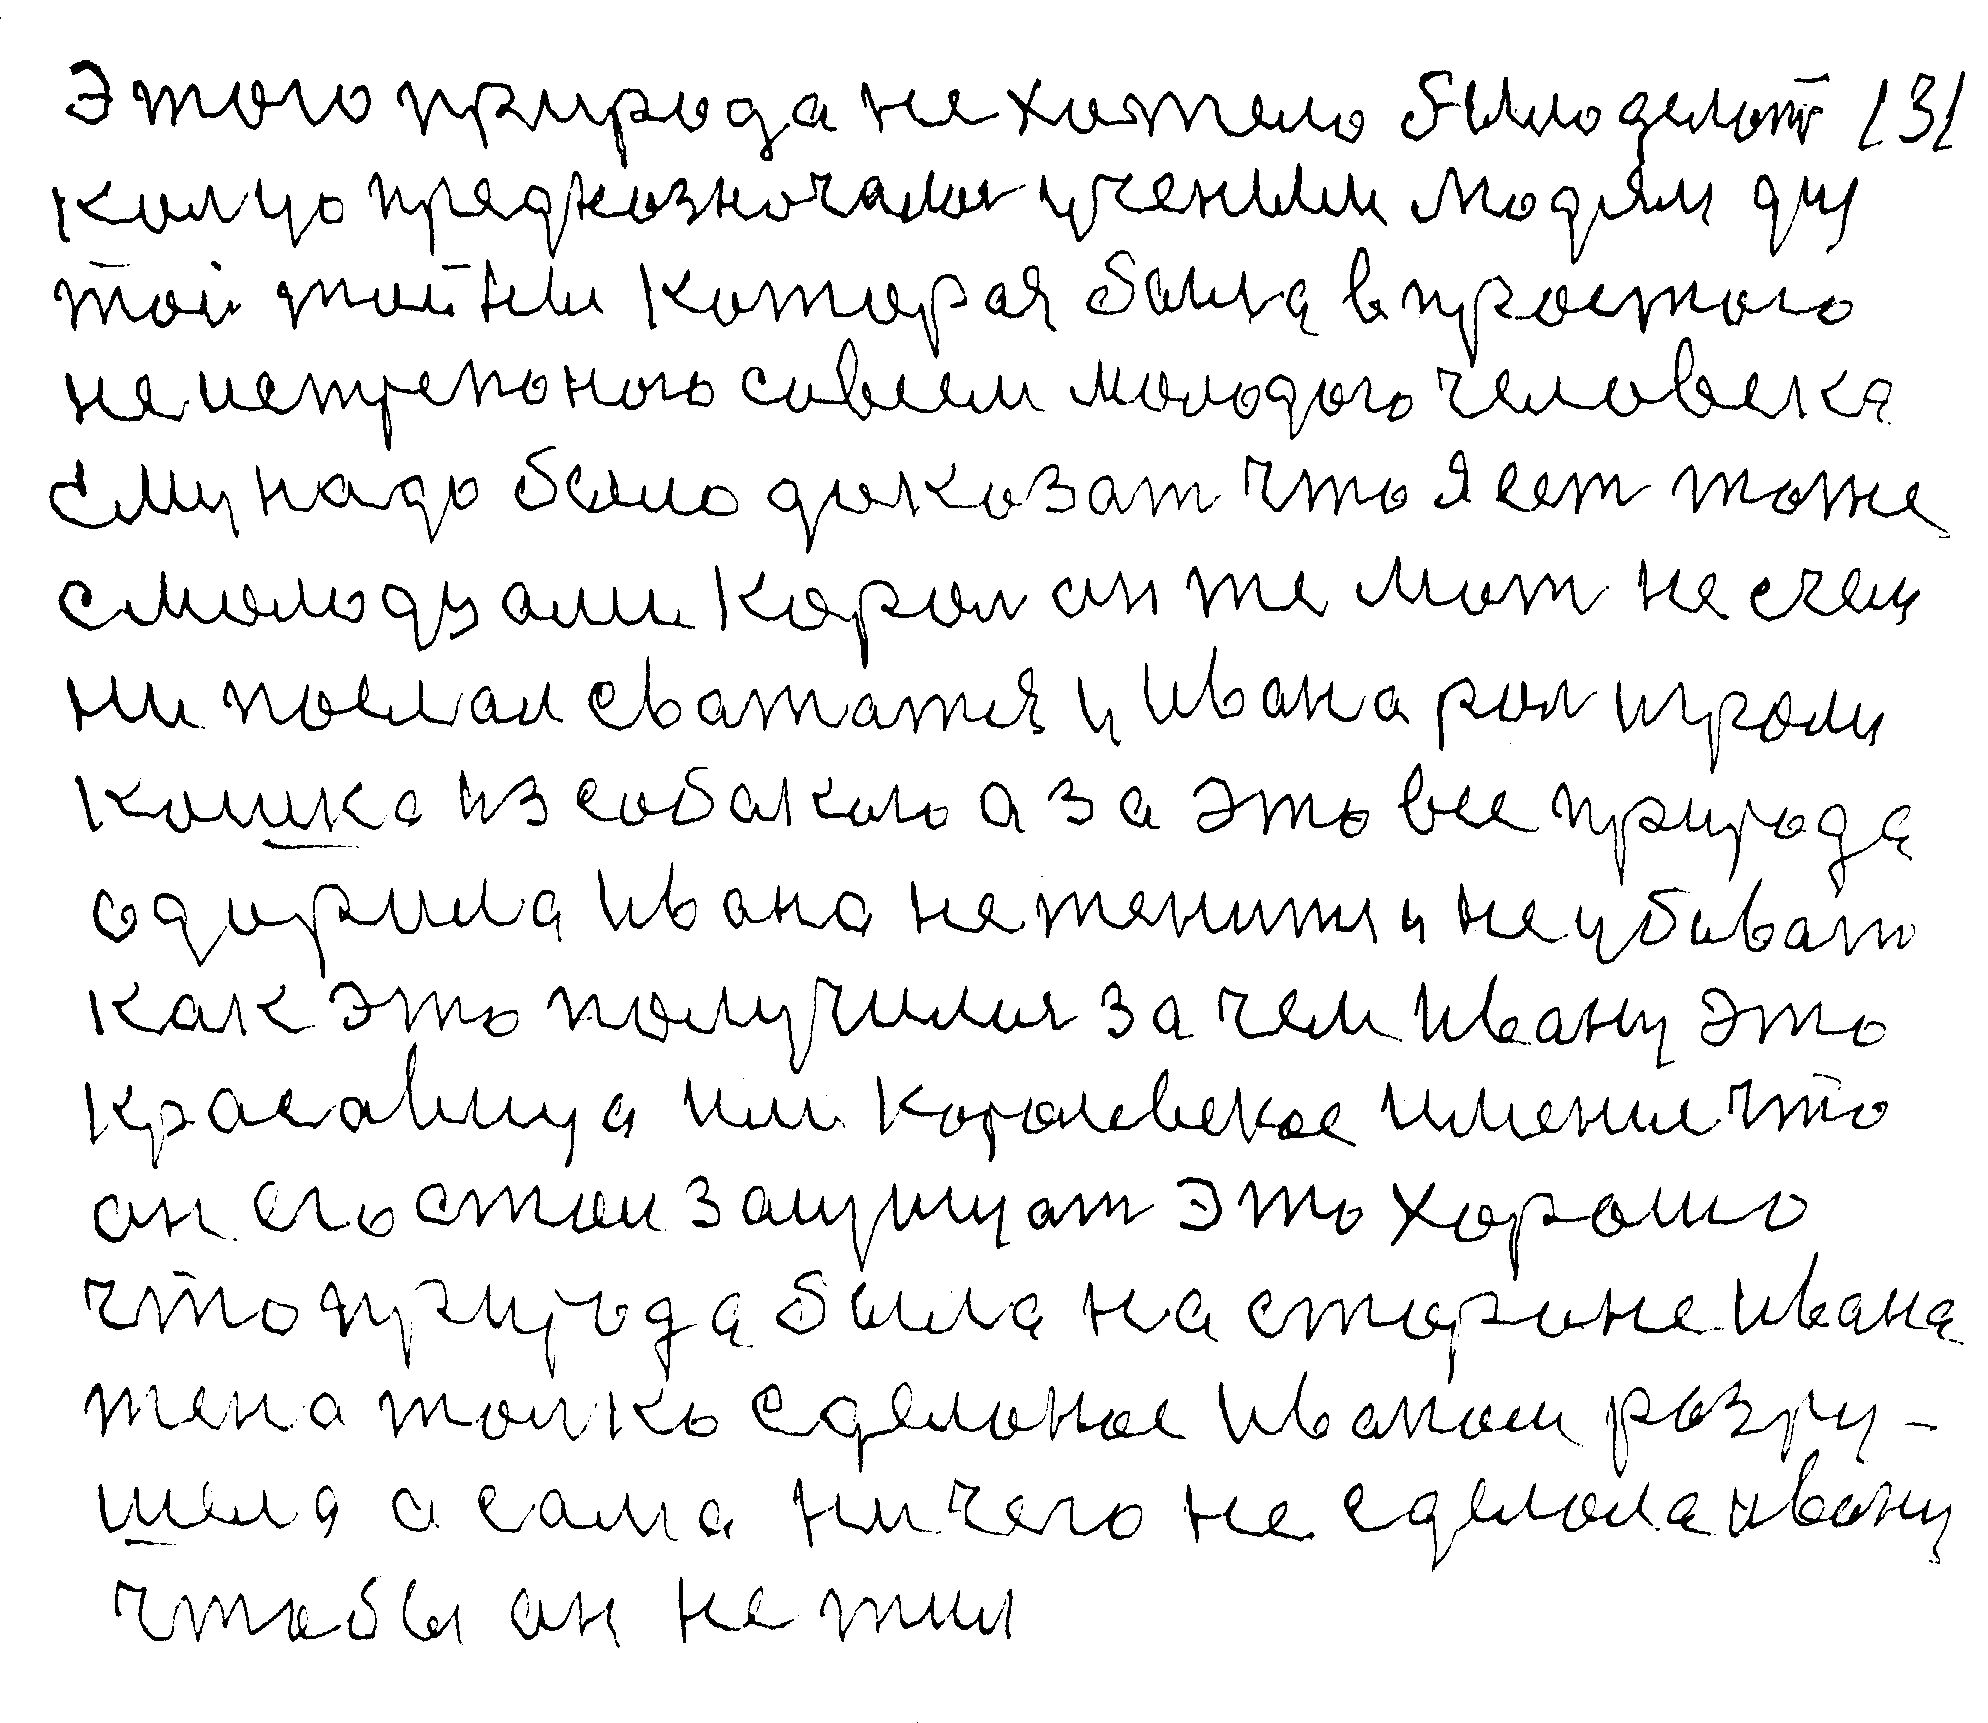 Этого природа не хотело было делать (3)
колцо предназночалося ученым людям ду
той тойны которая была в простого
не истрепоного совсем молодого человека
Ему надо было доказат что я ест тоже
с молодцами Корол он же мот не счещ
ни послал свататся у Ивана рол играли
кошка из собакою а за это все природа
одорила Ивана не женится и не убиват
как это получилося за чем Ивану это
красавица или королевское имение что
он его стал защищат это хорошо
что природа была на стороне Ивана
жена толко сделоное Иваном разру-
шела а сама ничего не сделола ивану
чтобы он не жил